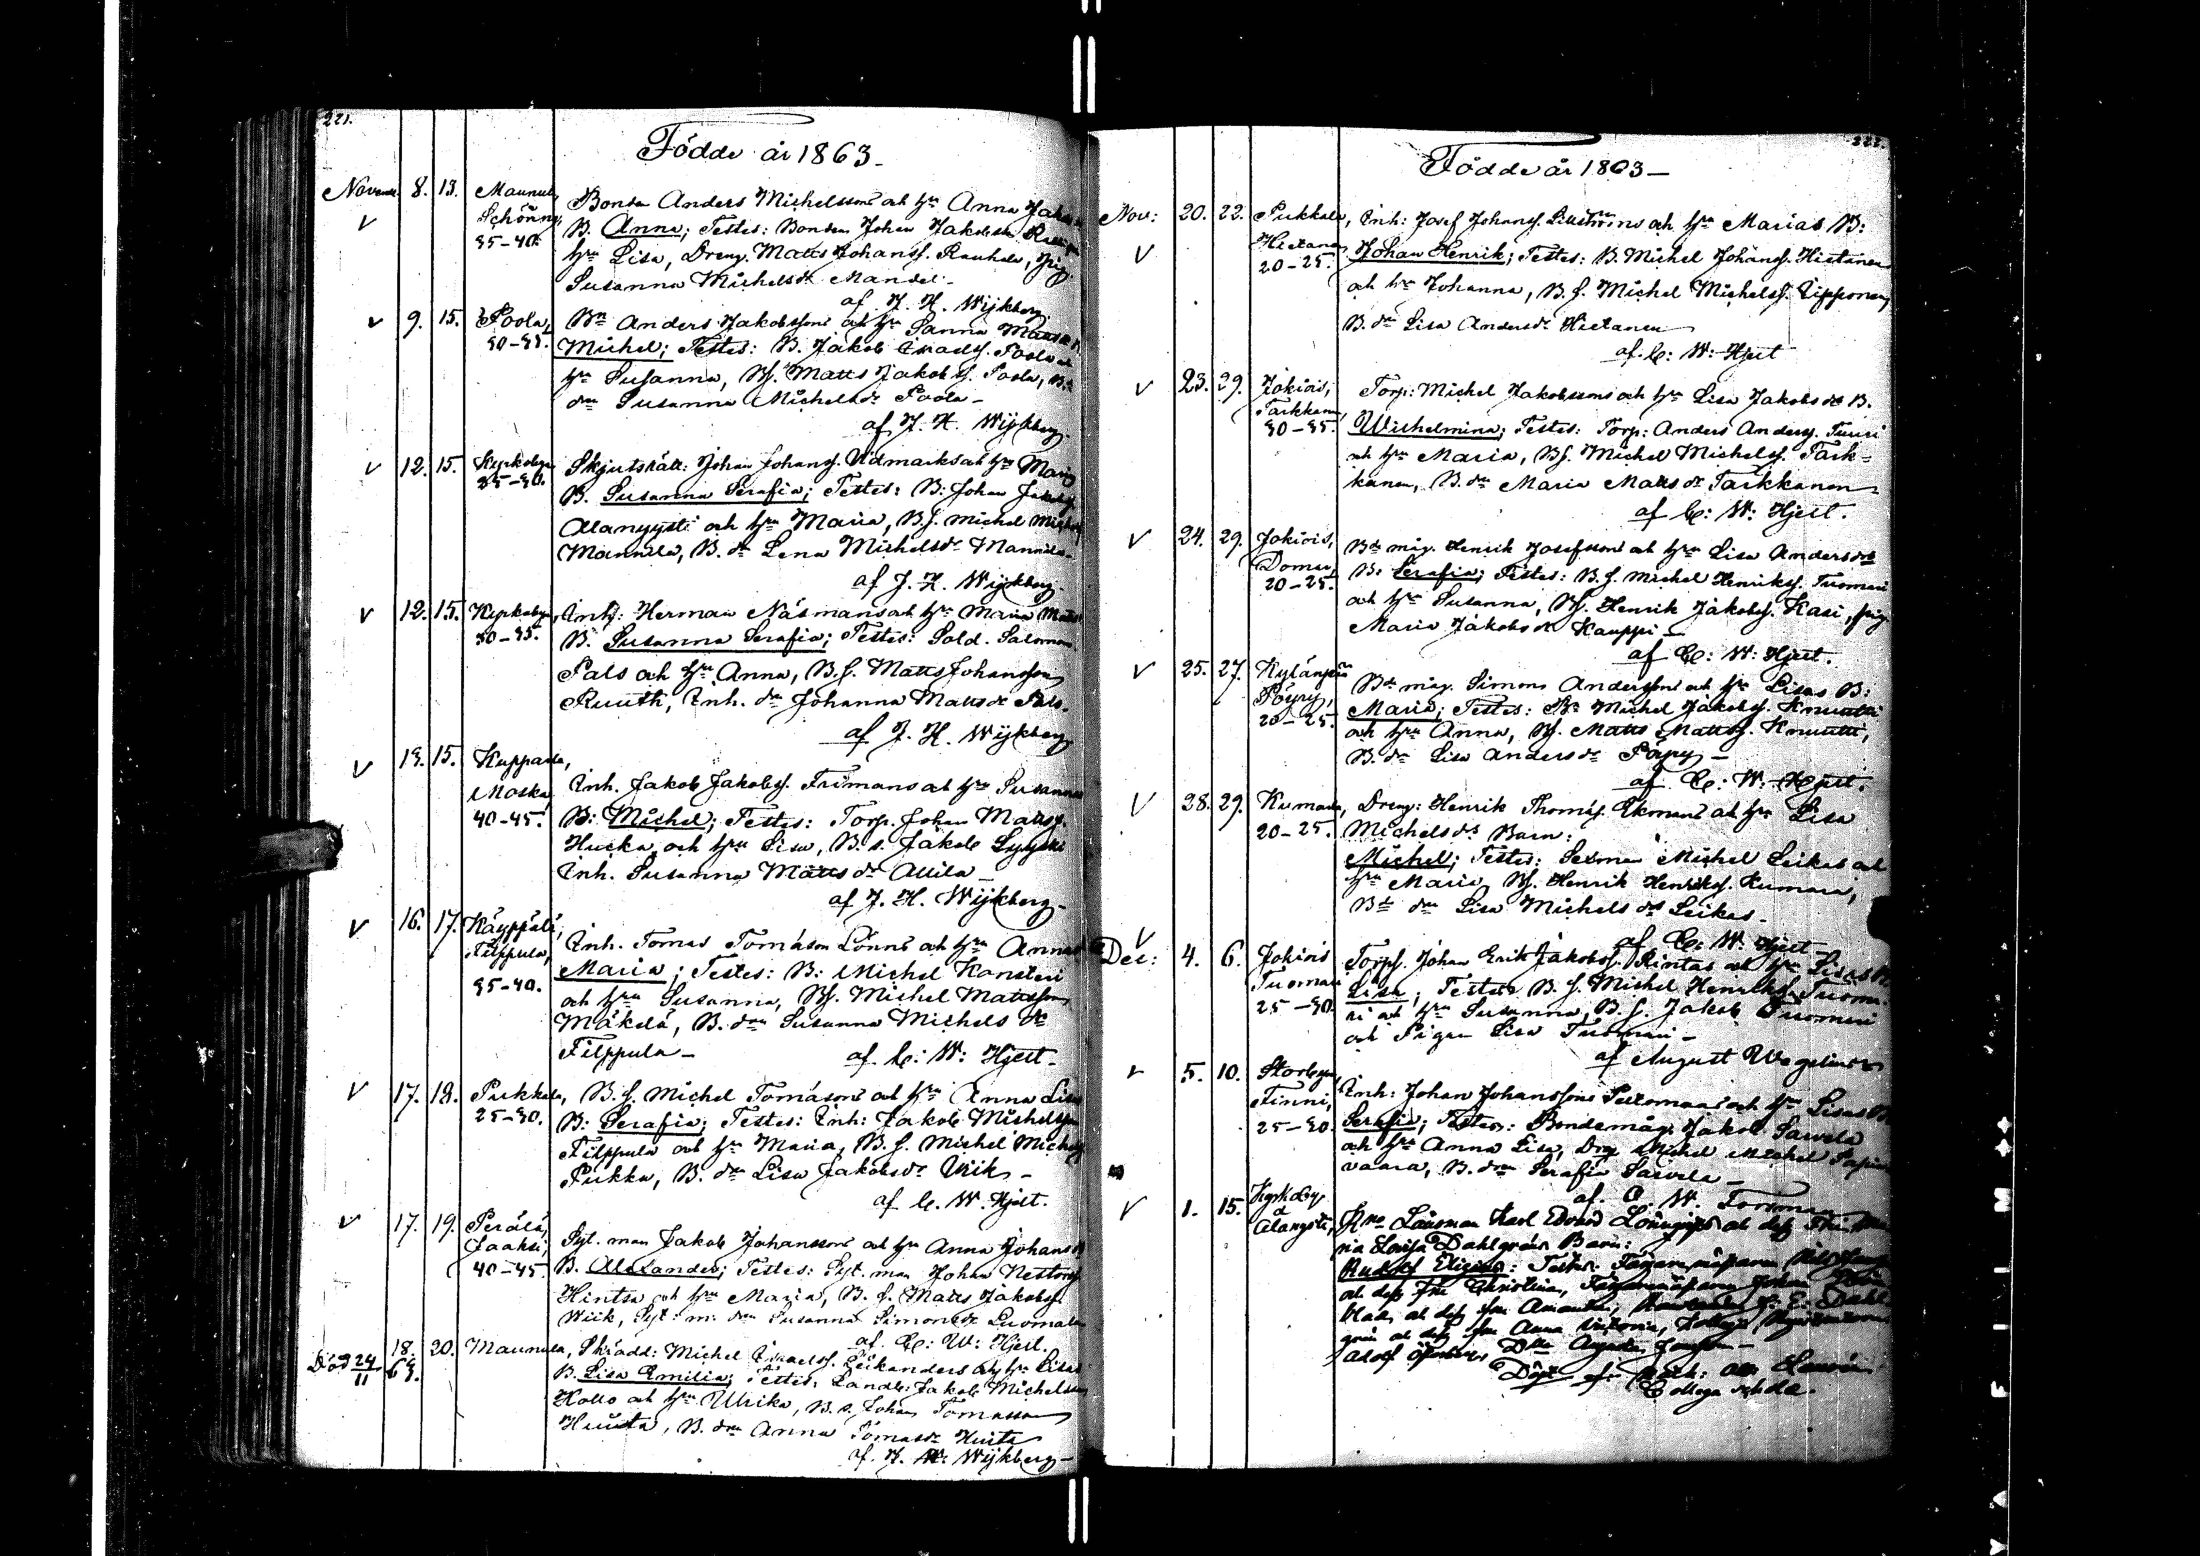 221.
Födde år 1863_
Novemb. 8. 13. Maunula, Schönng, 35-40.
Bonden Anders Michelssons och hu Anna
B. Anna; Testes: Bonden Johan Jakobsson
hu Lisa, Dreng. Matts Johanss. Rauhala, Pig.
Susanna Michelsdr Mandel.
af J. H. Wijkberg.
9. 15. Poola, 30-35.
Bn Anders Jakobssons och hu Sanna
Michel; Testes: B. Jakob Israelss. Poola och
hu Susanna, Bs. Matts Jakobss. Poola, B.
dn Susanna Michelsdr Poola_
af J. H. Wijkberg.
12. 15. Kyrkobyn 25-30.
Skjutsrätt. Johan Johanss. Widmarks och hu Maria
B. Susanna Serafia; Testes: B. Johan
Alangyysti och hu Maria, B.s. Michel
Mannila, B. dr Lena Michelsdr Mannila_
af J. H. Wijkberg
12. 15. Kyrkobyn, 30-35.
Inh: Herman Näsmans och hu Maria
B. Susanna Serafia; Testes: Sold. Salomon
Pals och hu Anna, B.s. Matts Johansson
Ruuth, Inh. dr Johanna Mattsdr Pals.
af J. H. Wijkberg
13. 15. Kuppala, Moska, 40-45.
Inh. Jakob Jakobss. Frimans och hu Susannas
B: Michel; Testes: Torp. Johan Mattss.
Hucka och hu Lisa, B.s. Jakob Lyyski
Inh. Susanna Mattsdr Attila_
af J. H. Wijkberg_
16. 17. Käyppälä, Filppula, 35-40.
Inh. Tomas Tomasson Lönns och hu Annas
Maria; Testes: B: Michel Kansteri
och hu Susanna, Bs. Michel Mattsson
Mäkelä, B. dn Susanna Michelsdr
Filppula_ af C: W: Hjelt.
17. 18. Pukkala, 25-30.
B.s. Michel Tomassons och hu Anna Lisas
B: Serafia; Testes: Inh: Jakob Michelsson
Filppula och hu Maria, B.s. Michel
Pukka, B. dn Lisa Jakobsdr Wiik_
af C. W. Hjelt.
17. 19. Perälä, Laaksi, 40-45.
Syt. man Jakob Johanssons och hu Anna Johansdr
B. Alexander; Testes: Syt. man Johan
Hintsa och hu Maria, B.s. Matts Jakobss.
Wiik, Syt. m: dn Susanna Simonsdr Luomala
af C: W: Hjelt.
Död 24/11 63.
18. 20. Maunula,
Skrädd: Michel Israelss. Leikanders och hu Lisas
B. Lisa Emilia; Testes: Landb: Jakob Michelsson
Hollo och hu Ulrika, B.s. Johan Tomasson
Huuta, B. dn Anna Tomasdr Huuta
af J. H. Wijkberg_
222.
Födde år 1863_
Nov: 20. 22. Pukkala, Hietanen 20-25.
Inh: Josef Johanss. Lillströms och hu Marias B:
Johan Henrik; Testes: B. Michel Johanss. Hietanen
och hu Johanna, B.s. Michel Michelss. Lipponen,
B. dn Lisa Andersdr Hietanen
af C: W: Hjelt
23. 29. Jokiois, Tarkkanen, 30-35.
Torp: Michel Jakobssons och hu Lisa Jakobsdr B.
Wilhelmina; Testes: Torp: Anders Anderss. Tuuri
och hu Maria, Bs. Michel Michelss. Tark-
kanen, B. dn Maria Mattsdr Tarkkanen
af C: W: Hjelt.
24. 29. Jokiois, Domar, 20-25.
Bde måg. Henrik Josefssons och hu Lisa Andersdrs
B: Serafia; Testes: B.s. Michel Henrikss. Tuomari
och hu Susanna, Bs. Henrik Jakobss. Kasi, pig.
Maria Jakobsdr Kauppi_
af C: W: Hjelt.
25. 27. Kylänpää Pöyry, 20-25.
Bde måg. Simon Anderssons och hu Lisas B:
Maria; Testes: Bn Michel Jakobss. Knuutti
och hu Anna, Bs. Matts Mattss. Knuutti,
B. dn Lisa Andersdr Pöyry_
af C: W: Hjelt.
28. 29. Kumara, 20-25.
Dreng: Henrik Thomass. Ekmans och hu Lisa
Michelsdrs Barn:
Michel; Testes: Sexman Michel Leikas och
hu Maria, Bs. Henrik Henrikss. Kumara,
Bde dn Lisa Michelsdr Leikas_
af C: W. Hjelt
Dec: 4. 6. Jokiois Tuomari 25-30.
Torps. Johan Erik Jakobss. Rintas och hu Lisas B.
Lisa; Testes B.s. Michel Henrikss. Tuoma-
ri och hu Susanna, B.s. Jakob Tuomari
och Pigan Lisa Tuomari_
af August Wegelius
5. 10. Storbyn, Finni, 25-30
Inh: Johan Johanssons och hu Lisas B
Serafia; Testes: Bondemåg: Jakob Sarvela
och hu Anna Lisa, Drg Michel Michel
vaara, B. dn Serafia Sarvela_
af. O. W. Forsman
1. 15. Kyrkoby d Alangysti,
Hrr Länsman Karl Edvard och dess Fru
ria Lovisa Dahlgréns Barn:
Rudolf; Testes: Färgaremästaren
och dess Fru Christina, Färgaremästaren Johan
blad och dess fru Amanda, Dahl
grén och dess fru Anna, Kollega
Adolf, Dlla Augusta_
Döpt af
Collega schola.